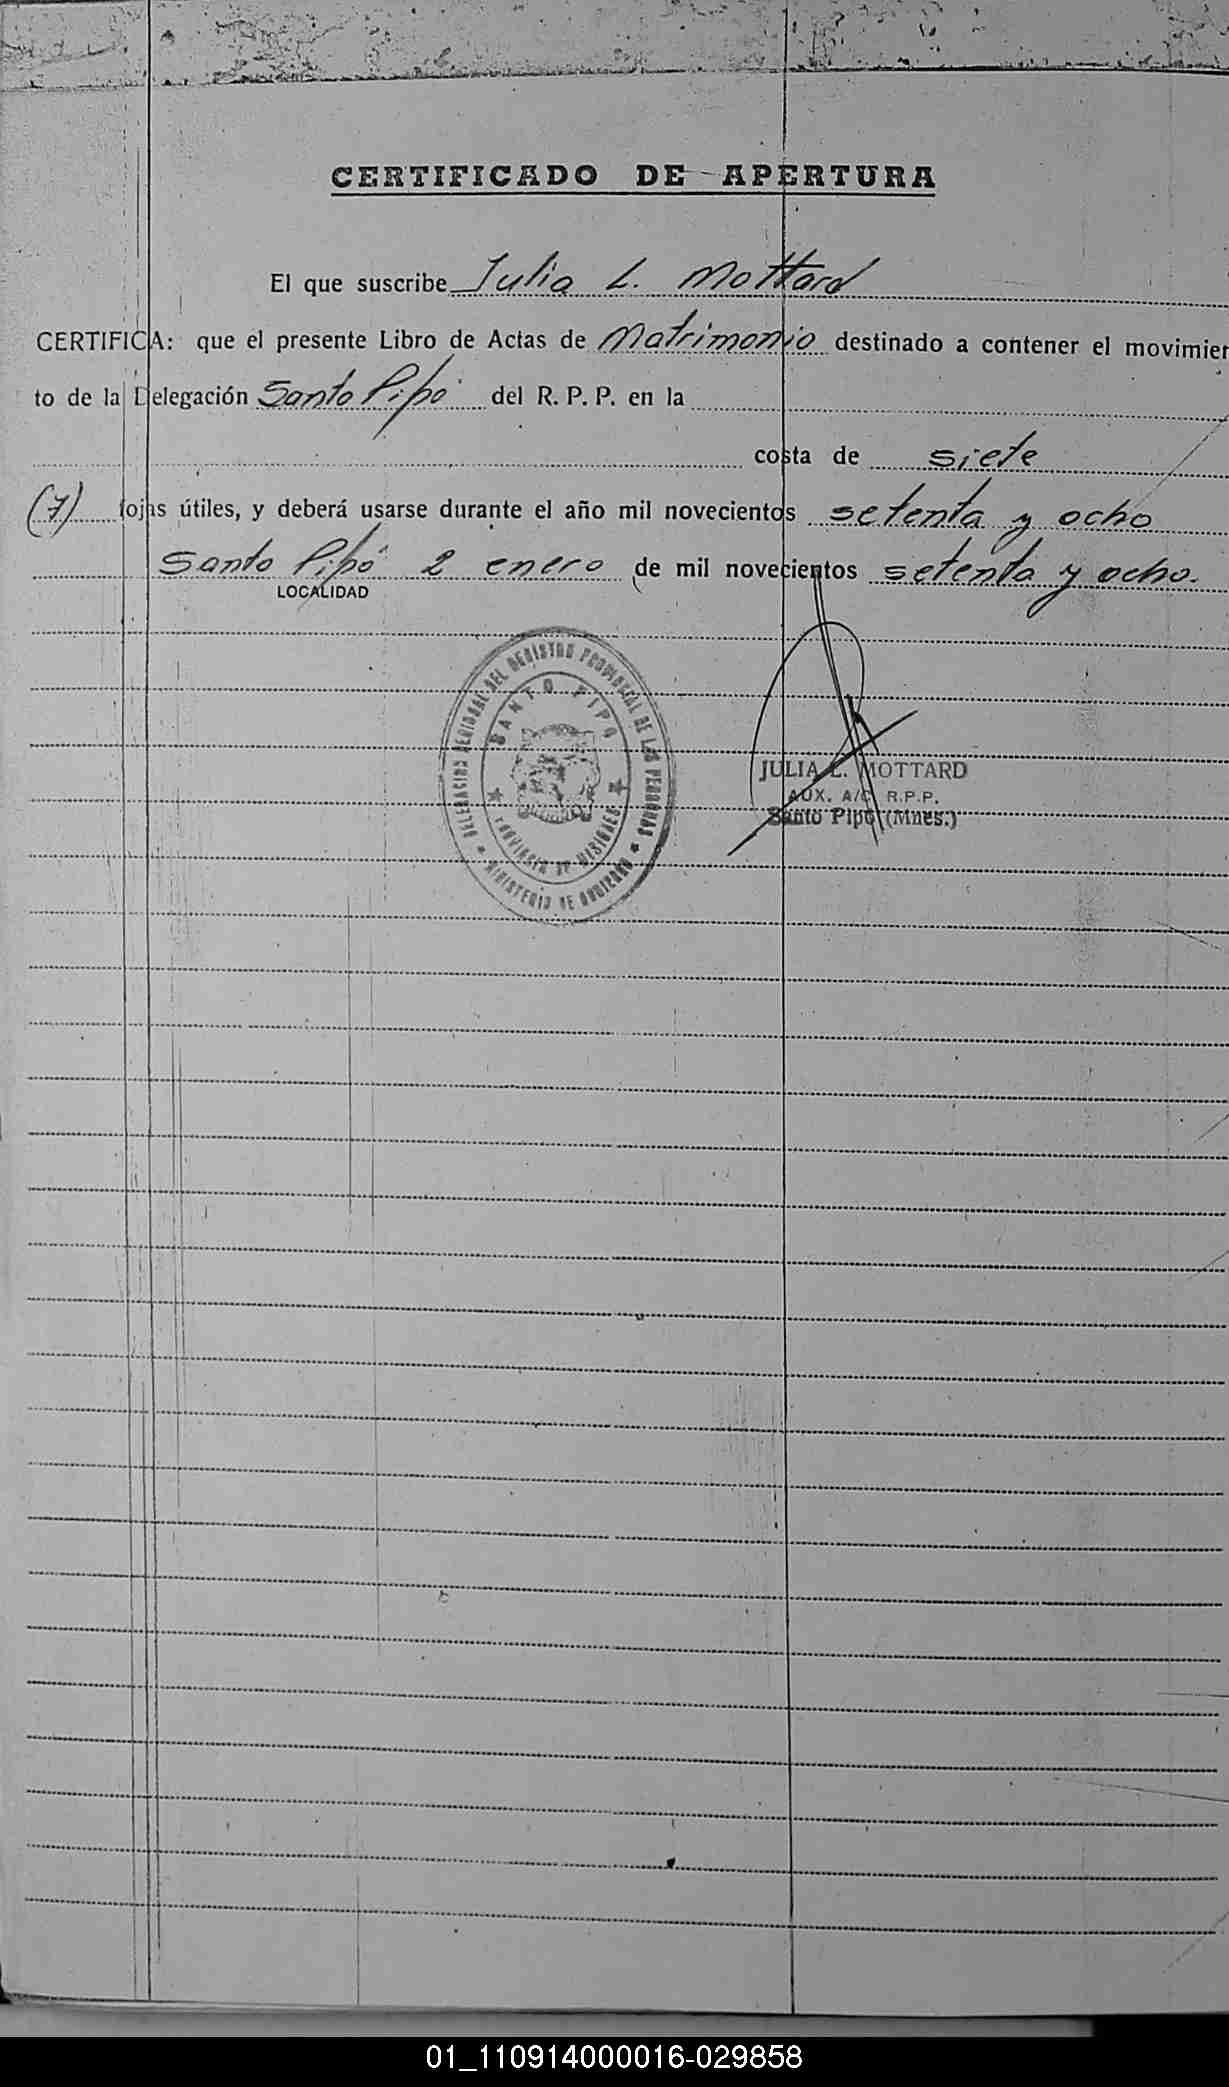 CERTIFICADO DE APERTURA
El que suscribe Julia L. Mottard
CERTIFICA: que el presente Libro de Actas de Matrimonio destinado a contener el movimien
to de la Delegación Santo Pipó del R. P. P. en la
costa de siete
(7) fojas útiles, y deberá usarse durante el año mil novecientos setenta y ocho
Santo Pipó 2 enero de mil novecientos setenta y ocho.
LOCALIDAD
DELEGACION SECCIONAL DEL REGISTRO PROVINCIAL DE LAS PERSONAS
SANTO PIPO
PROVINCIA DE MISIONES
MINISTERIO DE GOBIERNO
JULIA L. MOTTARD
AUX. A/C R.P.P.
Santo Pipó (Mnes.)
01_110914000016-029858